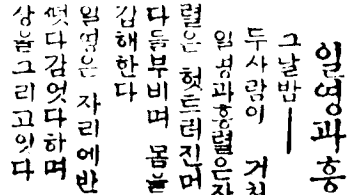 일영과흥
그날밤──
두사람이 거치
일영과흥렬은자
렬은 헛트러진머
다듬부비며 몸을
김해한다
일영은 자리에반
떳다감엇다하며
상을그리고잇다